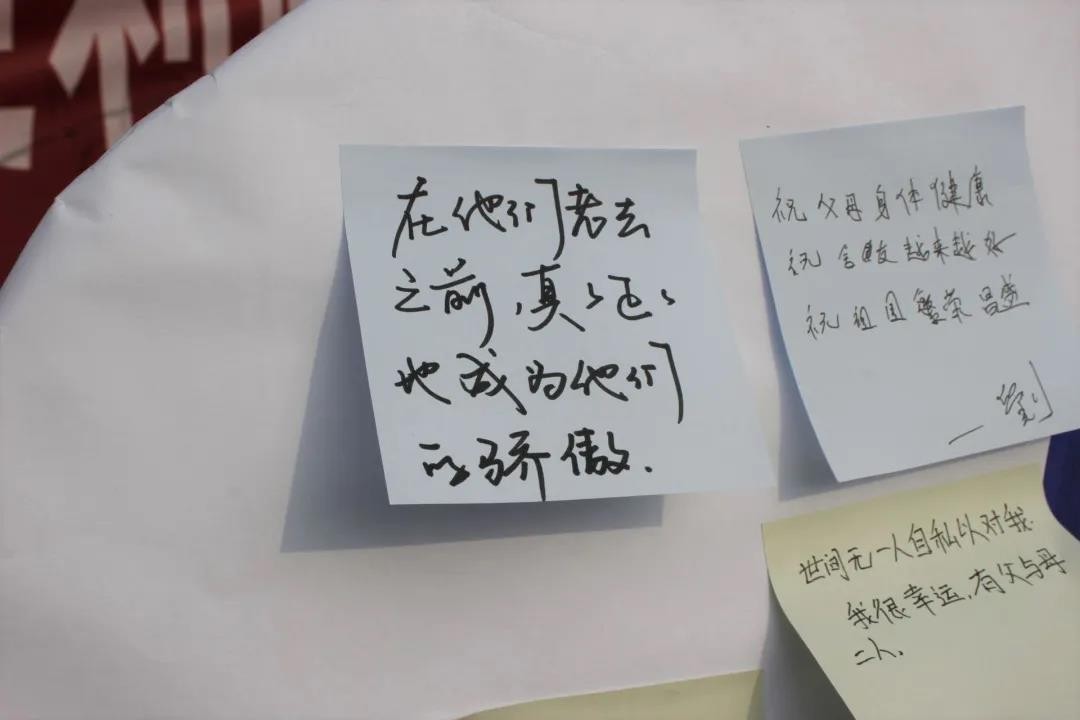 在他们老去
之前，真真正正
地成为他们
的骄傲.
祝父母身体健康
祝舍友越来越好
祝祖国繁荣昌盛
一刘
世间无一人自私以对我.
我很幸运，有父与母
二人.